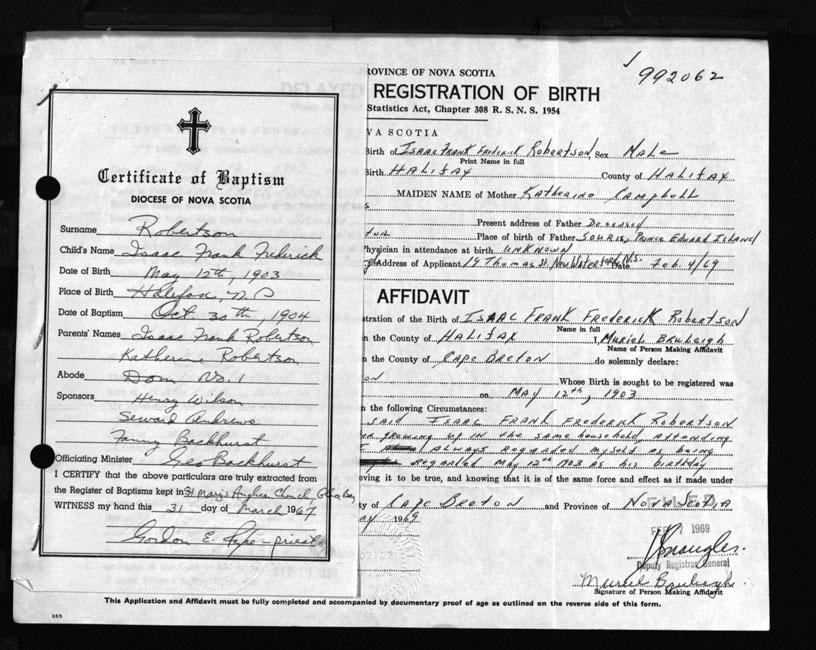 Certificate of Baptism
DIOCESE OF NOVA SCOTIA
Surname Robertson
Child's Name Isaac Frank Frederick
Date of Birth May 12th, 1903
Place of Birth Halifax, N.S
Date of Baptism Oct. 30th, 1904
Parents' Names Isaac Frank Robertson
Katherine Robertson
Abode Dom No. 1
Sponsors Henry Wilson
Seward Andrews
Fanny Backhurst
Officiating Minister Geo Backhurst
I CERTIFY that the above particulars are truly extracted from
the Register of Baptisms kept in St Mary's Anglican Church, Glace Bay
WITNESS my hand this 31 day of March 1967
Gordon E. Pope - priest
992062
PROVINCE OF NOVA SCOTIA
DELAYED REGISTRATION OF BIRTH
Statistics Act, Chapter 308 R. S. N. S. 1954
VA SCOTIA
Birth of ISAAC FRANK FREDERICK ROBERTSON, Sex MALE
Print Name in full
Birth HALIFAX County of HALIFAX
MAIDEN NAME of Mother KATHERINE CAMPBELL
Present address of Father DECEASED
Place of birth of Father SOURIS, PRINCE EDWARD ISLAND
Physician in attendance at birth UNKNOWN
Address of Applicant 19 THOMAS ST. NEW WATERFORD, N.S. Date Feb. 4/69
AFFIDAVIT
stration of the Birth of ISAAC FRANK FREDERICK ROBERTSON
Name in full
n the County of HALIFAX I, MURIEL BRULEIGH
Name of Person Making Affidavit
n the County of CAPE BRETON do solemnly declare:
ON Whose Birth is sought to be registered was
on MAY 12th, 1903
n the following Circumstances:
SAID ISAAC FRANK FREDERICK ROBERTSON
GROWING UP IN THE SAME HOUSEHOLD, ATTENDING
I ALWAYS REGARDED MYSELF AS BEING
REGARDED MAY 12th 1903 AS HIS BIRTHDAY
eving it to be true, and knowing that it is of the same force and effect as if made under
ty of CAPE BRETON and Province of NOVA SCOTIA
1969
FILED
FEB 7 1969
Deputy Registrar General
Muriel Bruleigh
Signature of Person Making Affidavit
This Application and Affidavit must be fully completed and accompanied by documentary proof of age as outlined on the reverse side of this form.